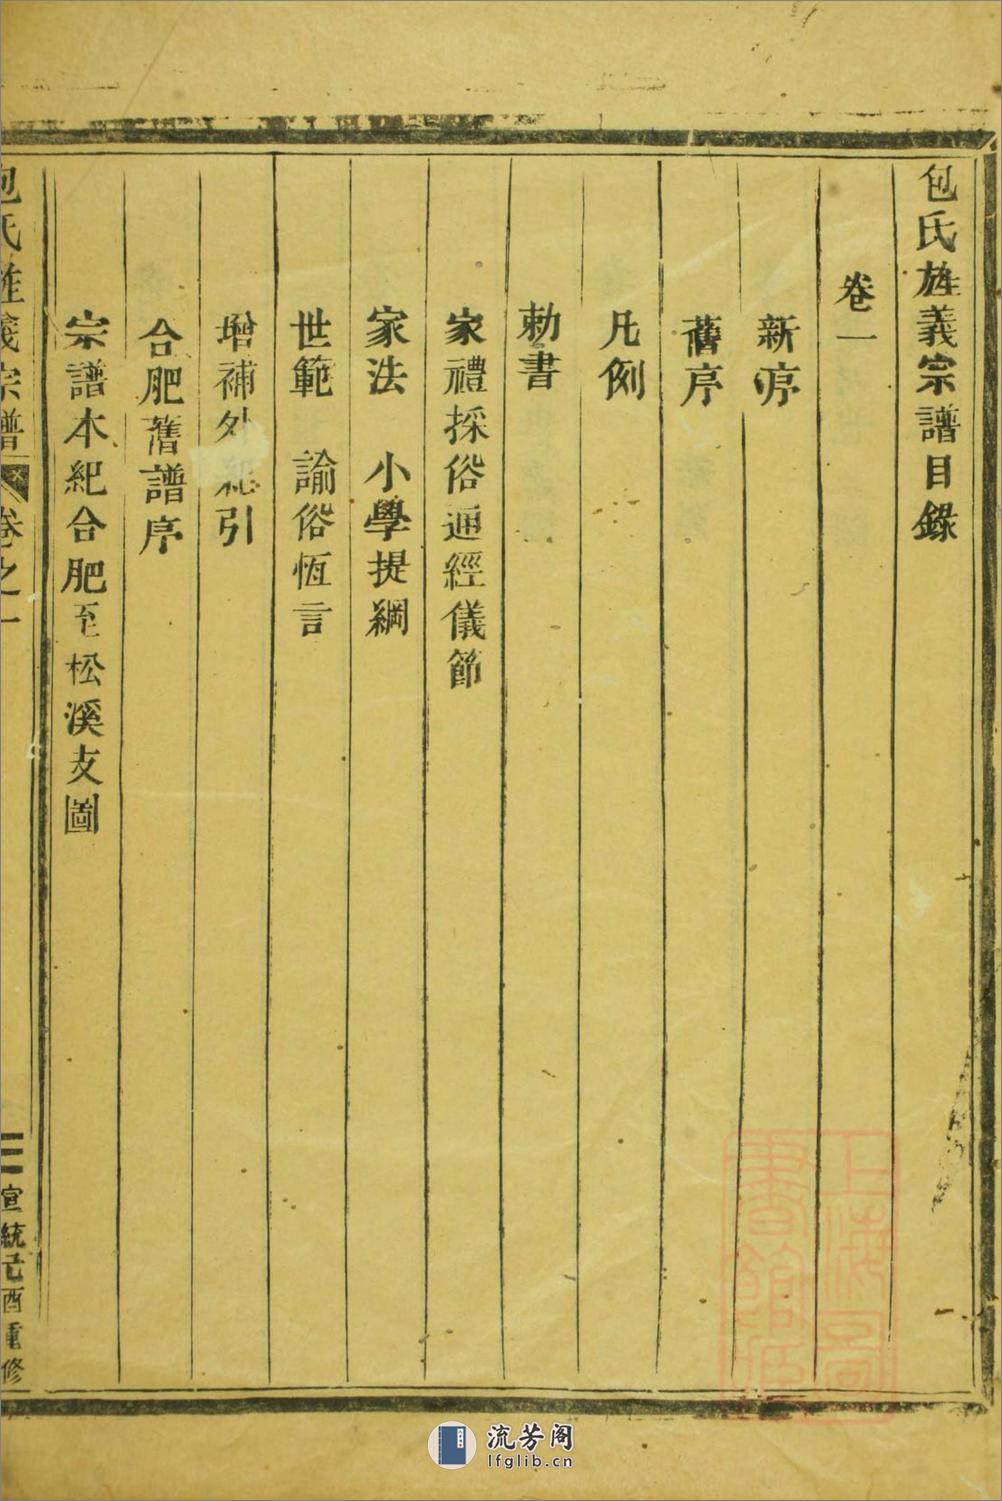 包氏旌義宗譜目錄
卷一
新序
舊序
凡例
勅書
家禮採俗通經儀節
家法　小學提綱
世範　諭俗恆言
增補外紀引
合肥舊譜序
宗譜本紀合肥至松溪支圖
包氏旌義宗譜 卷之一 宣統己酉重修
上海圖書館藏
流芳阁
lfglib.cn